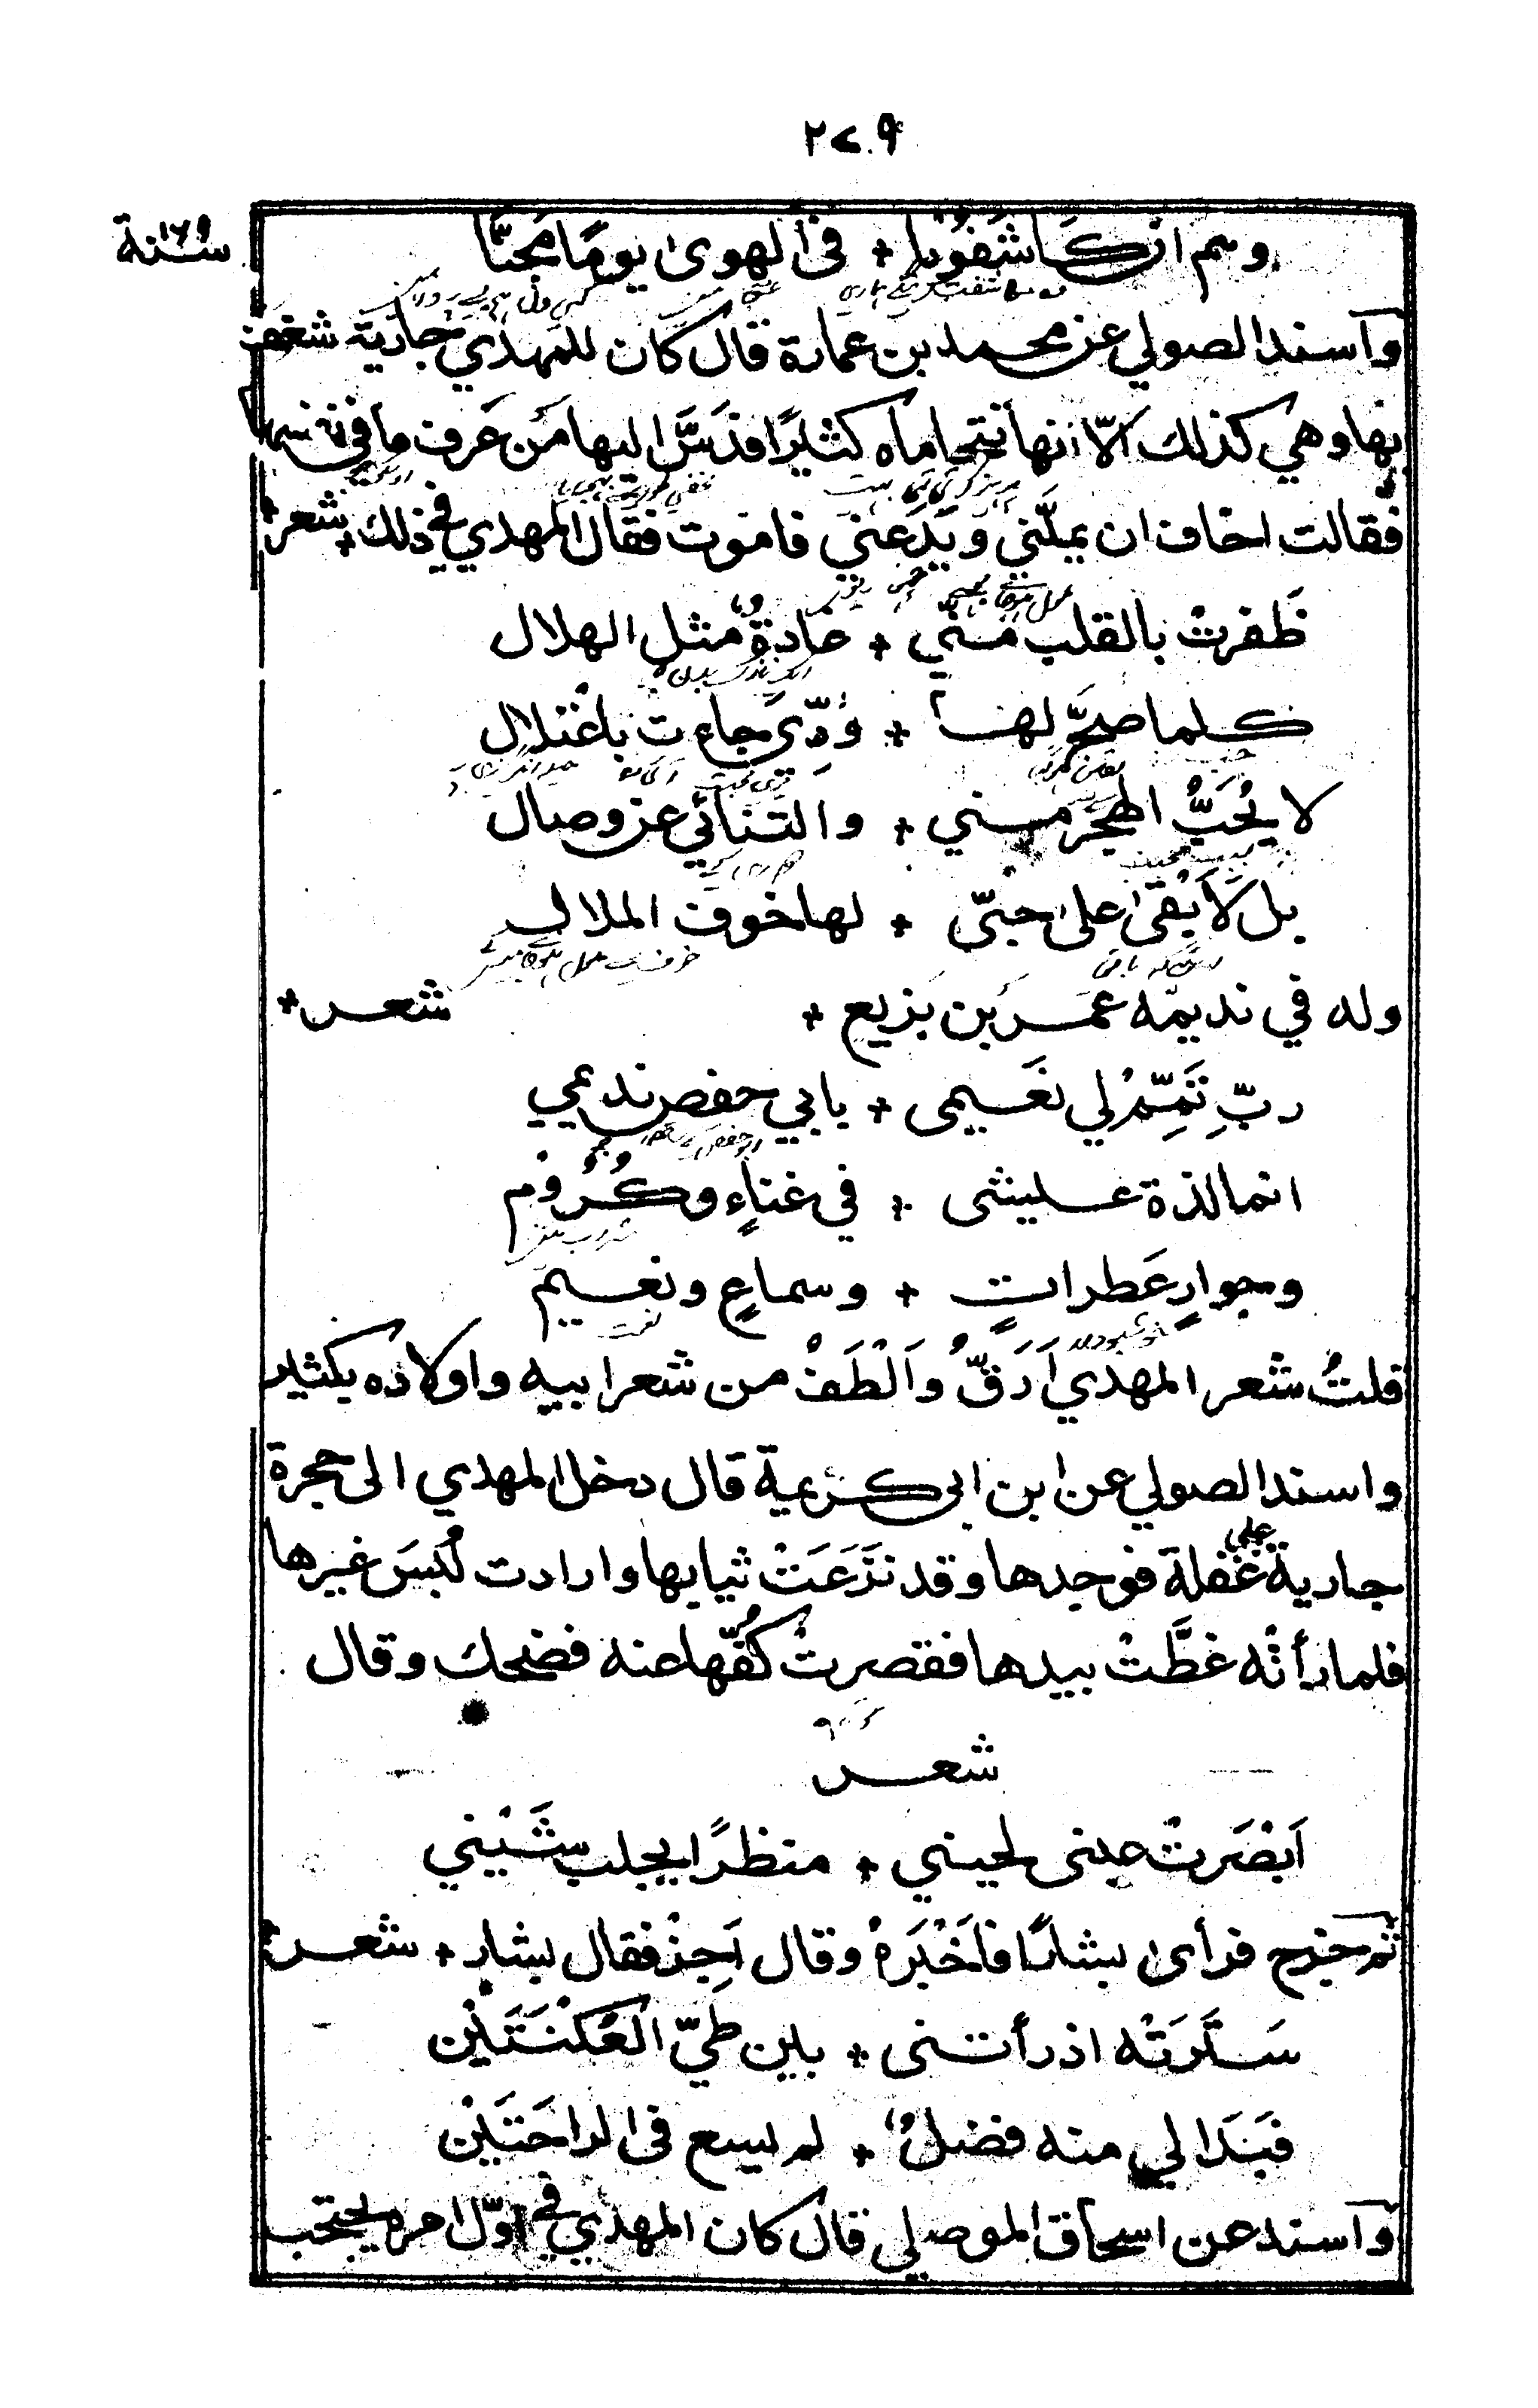 ٢٧٩
سنة ١٦٩
وهم ان كاشفونا + في الهوى يومًا مجنّا
واسند الصولي عن محمد بن عمارة قال كان للمهدي جارية شغف
بها وهي كذلك الّا انها تتحاماه كثيرًا فدَسَّ اليها مَن عَرف ما في نفسها
فقالت اخاف ان يملّني ويَدَعني فاموت فقال المهدي في ذلك + شعر +
ظَفرتْ بالقلب منّي + غادةٌ مثل الهلال
كلما صحَّ لها + وُدِّي جاءت باعْتلال
لا لِحُبّ الهَجْر مني + والتنائي عن وصال
بل لاَبْقى على حبّي + لها خوف الملال
وله في نديمه عمر بن بَزيع + شعر +
ربِّ تَمِّمْ لي نعَيمى + بابي حفص نديمي
انما لذة عيشى + في غناءٍ وكُرُوْم
وجوارٍ عَطراتٍ + وسماعٍ ونعيم
قلتُ شعر المهدي اَرَقُّ واَلْطَفْ من شعر ابيه واولاده بكثير
واسند الصولي عن ابن ابى كريمة قال دخل المهدي الى حجرة
جارية على غَفلة فوجدها وقد نزَعَتْ ثيابها وارادت لُبسَ غيرها
فلما رأتْه غطَّتْ بيدها فقصرتْ كفّها عنه فضحك وقال
شعر
اَبْصَرتْ عينى لحيني + منظرًا يجلب شَيْني
ثم خرج فرأى بشارًا فاَخْبَرَهُ وقال اَجِزْ فقال بشار + شعر +
سَتَرَتْه اذ رأتنى + بين طيّ العُكْنَتَيْن
فبَدَا لي منه فضلٌ + لم يسع في الراحَتَيْن
واسند عن اسحاق الموصلي قال كان المهدي في اوّل امره يحتجب